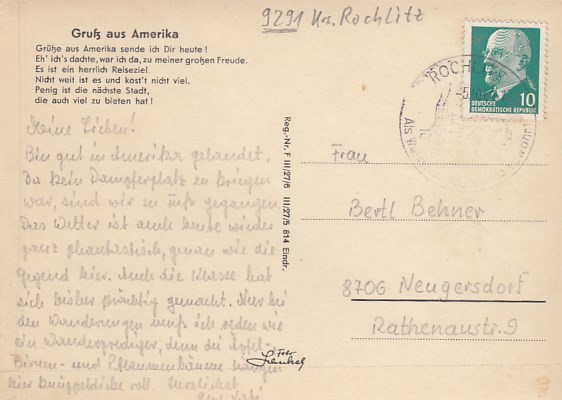 9291 Krs. Rochlitz
Gruß aus Amerika
Grüße aus Amerika sende ich Dir heute!
Eh' ich's dachte, war ich da, zu meiner großen Freude.
Es ist ein herrlich Reiseziel.
Nicht weit ist es und kost't nicht viel.
Penig ist die nächste Stadt,
die auch viel zu bieten hat!
ROCHLITZ
10
DEUTSCHE
DEMOKRATISCHE REPUBLIK
Meine Lieben!
Bin gut in Amerika gelandet.
Da kein Dampferplatz zu kriegen
war, sind wir zu Fuß gegangen.
Das Wetter ist auch heute wieder
ganz phantastisch, genau wie die
Gegend hier. Auch die Klasse hat
sich bisher prächtig gemacht. Nur bei
den Wanderungen muß ich reden wie
ein Wanderprediger, denn die Apfel-
Birnen- und Pflaumenbäume hängen
hier knüppeldicke voll. Herzlichst
Reg.-Nr. F III/27/6 III/27/5 814 Eindr.
Frau
Bertl Behner
8706 Neugersdorf
Rathenaustr. 9
Foto